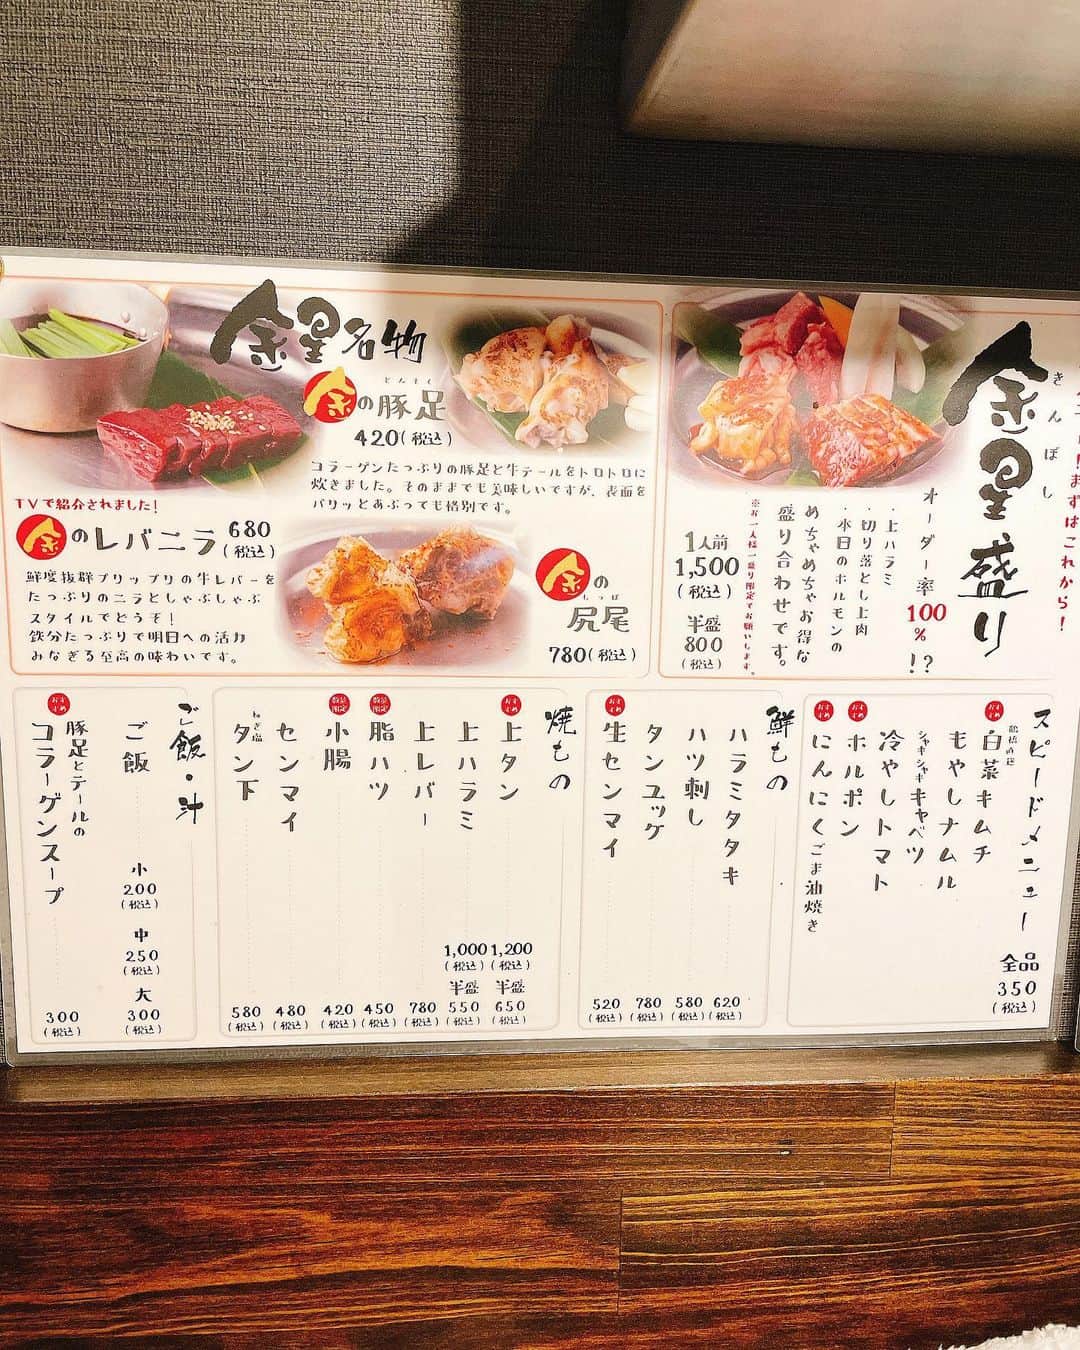 金星名物
とんそく
金の豚足
420(税込)
コラーゲンたっぷりの豚足と牛テールをトロトロに
炊きました。そのままでも美味しいですが、表面を
パリッとあぶっても格別です。
TVで紹介されました！
金のレバニラ
680
(税込)
鮮度抜群プリップリの牛レバーを
たっぷりのニラとしゃぶしゃぶ
スタイルでどうぞ！
鉄分たっぷりで明日への活力
みなぎる至高の味わいです。
金の
しっぽ
尻尾
780(税込)
まずはこれから！
きんぼし
金星盛り
オーダー率100%！？
・上ハラミ
・切り落とし上肉
・本日のホルモンの
めちゃめちゃお得な
盛り合わせです。
※お一人様一盛り限定でお願いします。
1人前
1,500
(税込)
半盛
800
(税込)
スピードメニュー
全品
350
(税込)
おすすめ
鶴橋直送
白菜キムチ
もやしナムル
シャキシャキキャベツ
冷やしトマト
おすすめ
ホルポン
おすすめ
にんにくごま油焼き
鮮もの
ハラミタタキ
620
(税込)
ハツ刺し
580
(税込)
タンユッケ
780
(税込)
おすすめ
生センマイ
520
(税込)
焼もの
おすすめ
上タン
1,200
(税込)
半盛
650
(税込)
上ハラミ
1,000
(税込)
半盛
550
(税込)
上レバー
780
(税込)
数量限定
脂ハツ
450
(税込)
数量限定
小腸
420
(税込)
センマイ
480
(税込)
ねぎ塩
タン下
580
(税込)
ご飯・汁
ご飯
小
200
(税込)
中
250
(税込)
大
300
(税込)
おすすめ
豚足とテールの
コラーゲンスープ
300
(税込)